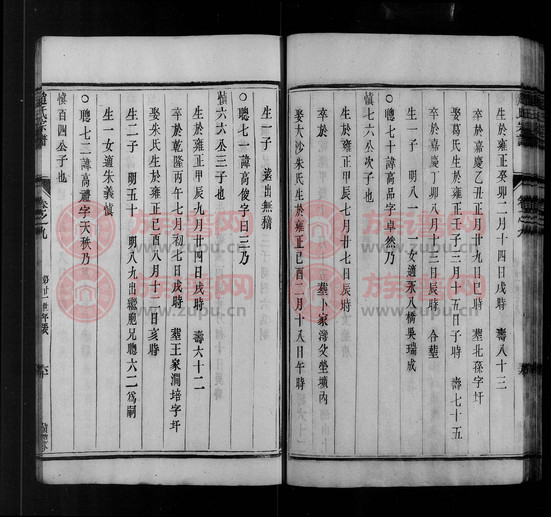 生於雍正癸卯二月十四日戌時 壽八十三
卒於嘉慶乙丑正月廿九日巳時 葬北葆字圩
娶葛氏生於雍正壬子三月十五日子時 壽七十五
卒於嘉慶丁卯八月十三日辰時 合葬
生一子 明八一 二女適張八橋吳瑞成
○聰七十諱高品字卓然乃
慎七六公次子也
生於雍正甲辰七月廿七日辰時
卒於 葬卜家灣父墳內
娶大沙朱氏生於雍正己酉二月十八日午時
生一子 遠出無積
○聰七一諱高俊字曰三乃
慎六六公三子也
生於雍正甲辰九月廿四日戌時 壽六十二
卒於乾隆丙午七月初七日戌時 葬王家澗培字圩
娶朱氏生於雍正己酉八月十二日亥時
生二子 明五十 明八九出繼胞兄聰六二為嗣
生一女適朱義慎
○聰七二諱高禮字天秩乃
慎百四公子也
趙氏宗譜
卷之九
第廿一世
族谱网
www.zupu.cn